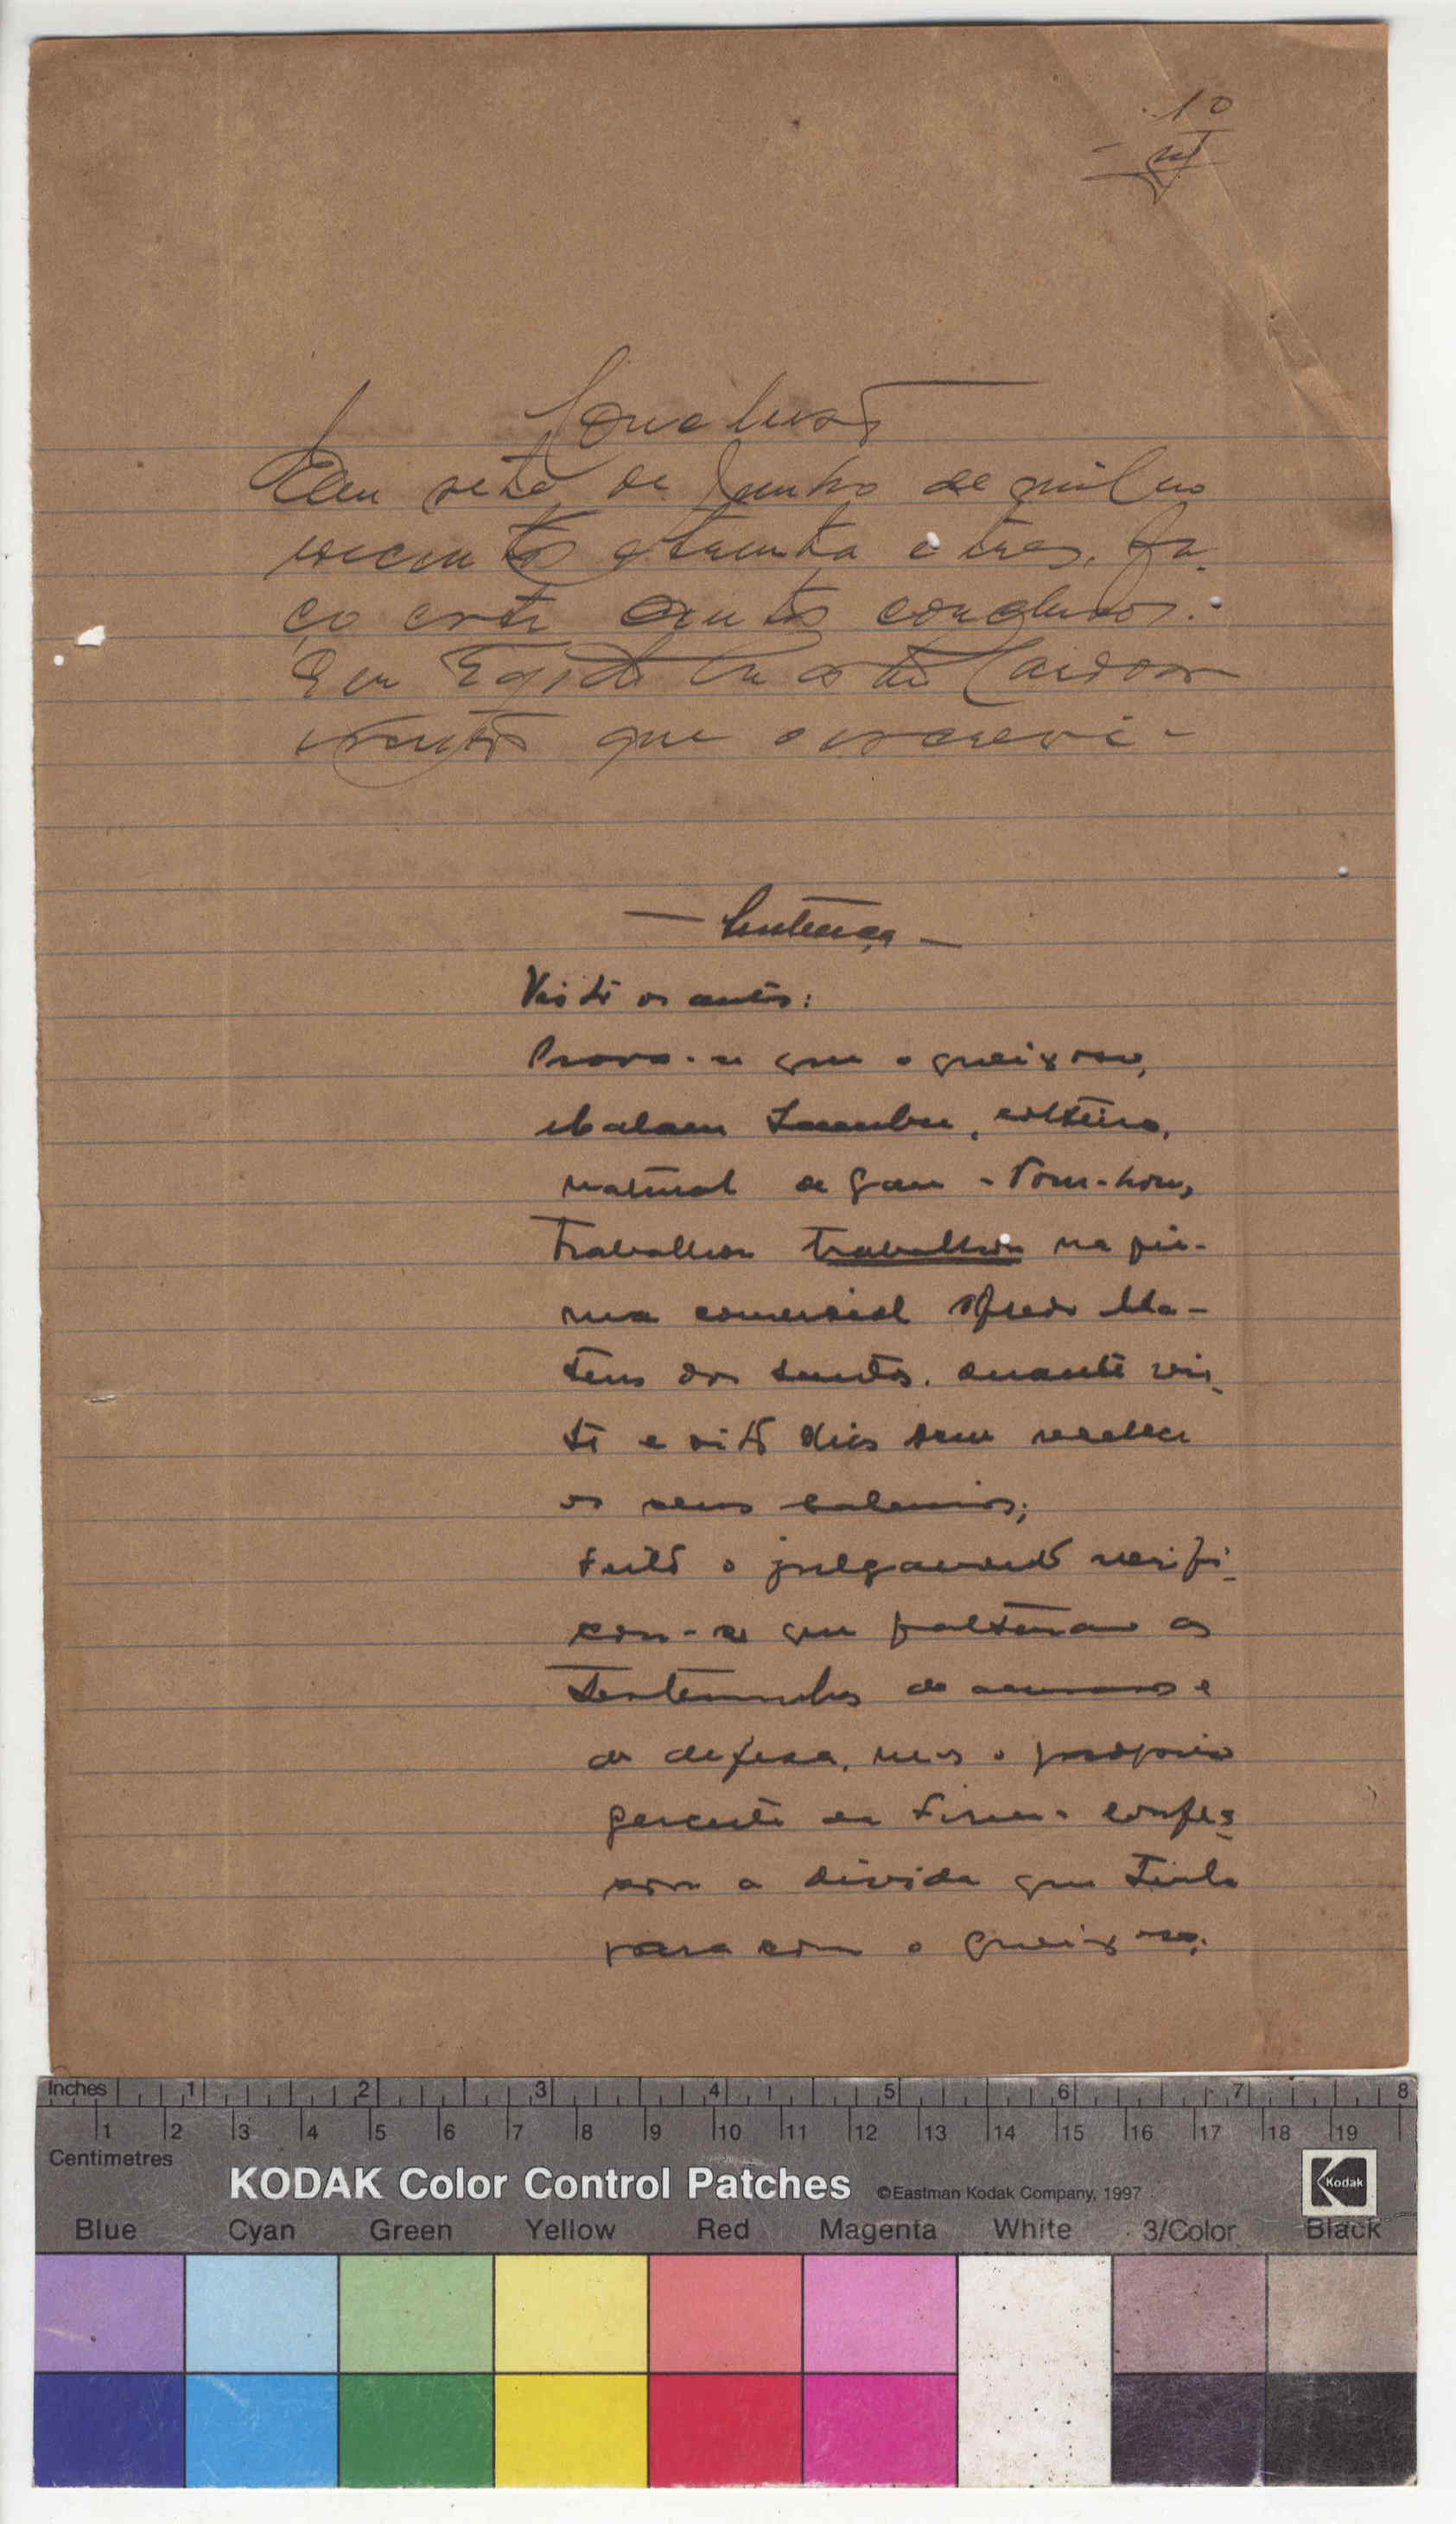 10
Conclusão
Em sete de Junho de mil no
vecentos e trinta e tres, fa-
ço estes autos conclusos.
Eu Egidio Cardoso
escrivão que o escrevi-
— Sentença —
Visto os autos:
Prova-se que o queixoso,
Malam, solteiro,
natural de
Trabalhou trabalhou na fir-
ma comercial Alfredo Ma-
teus dos Santos, durante vin-
te e oito dias sem receber
os seus salarios;
Feito o julgamento verifi-
cou-se que faltaram as
Testemunhas de acusação e
de defesa, mas o proprio
gerente da firma confes-
sou a divida que tinha
para com o queixoso;
Inches 1 2 3 4 5 6 7 8
1 2 3 4 5 6 7 8 9 10 11 12 13 14 15 16 17 18 19
Centimetres
KODAK Color Control Patches ©Eastman Kodak Company, 1997 Kodak
Blue Cyan Green Yellow Red Magenta White 3/Color Black